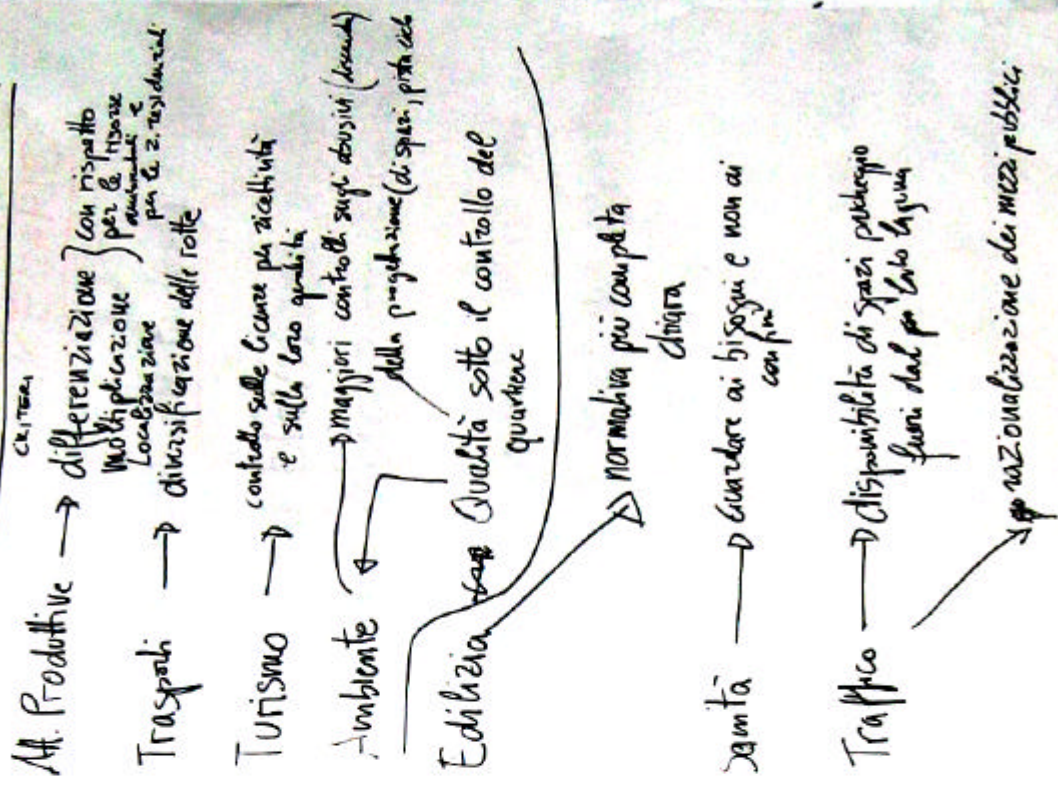 CRITERI
Att. Produttive → differenziazione
moltiplicazione
Localizzazione
} con rispetto
per le risorse
ambientali e
per le z. residenziali
Trasporti → diversificazione delle rotte
Turismo → controllo sulle licenze per ricettività
e sulla loro qualità
Ambiente → maggiori controlli sugli abusivi
della progettazione (di spazi, pista
Qualità sotto il controllo del
quartiere
Edilizia → normativa più completa
chiara
Sanità → Guardare ai bisogni e non ai
confini
Traffico → disponibilità di spazi parcheggio
fuori dal lato laguna
→ razionalizzazione dei mezzi pubblici